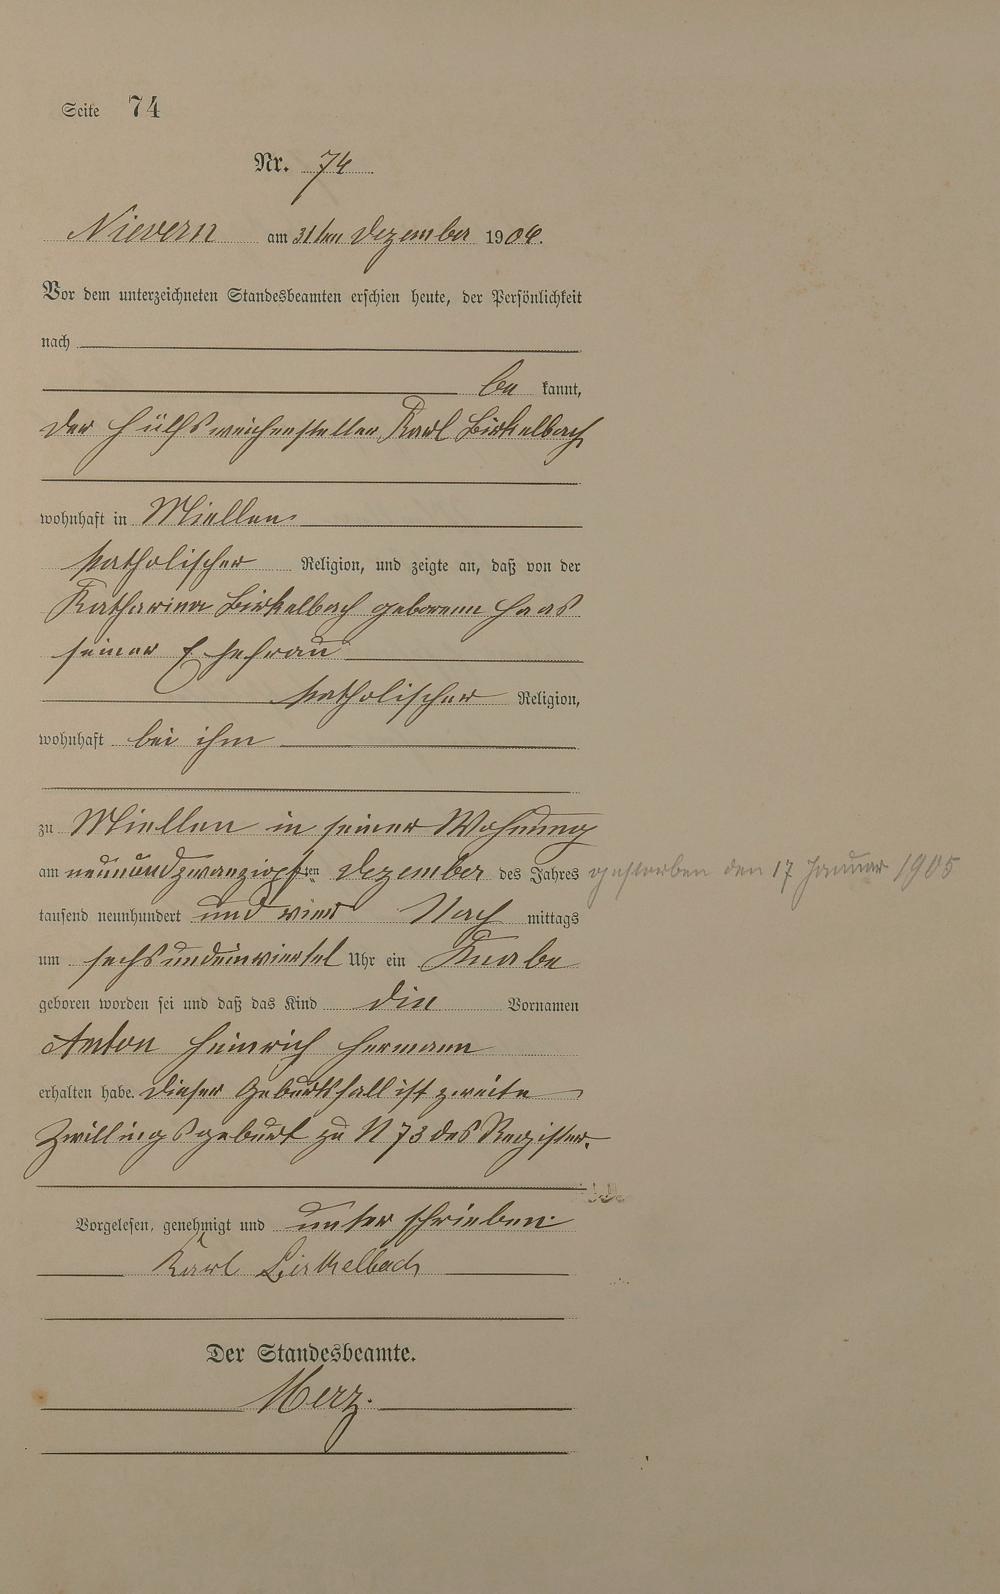 Seite 74
Nr. 74
Nievern am 31ten Dezember 1904.
Vor dem unterzeichneten Standesbeamten erschien heute, der Persönlichkeit
nach
be kannt,
der Hülfsweichensteller Karl Birkelbach
wohnhaft in Miellen
katholischer Religion, und zeigte an, daß von der
Katharina Birkelbach geborenn Haas
seiner Ehefrau
katholischer Religion,
wohnhaft bei ihm
zu Miellen in seiner Wohnung
am neunundzwanzigsten Dezember des Jahres gestorben den 17 Januar 1905
tausend neunhundert und vier Nach mittags
um sechsundeinviertel Uhr ein Knabe
geboren worden sei und daß das Kind die Vornamen
Anton Heinrich Hermann
erhalten habe. Dieser Geburtsfall ist zweite
Zwillingsgeburt zu N 73 des Register.
Vorgelesen, genehmigt und unterschrieben
Karl Birkelbach
Der Standesbeamte.
Merz.